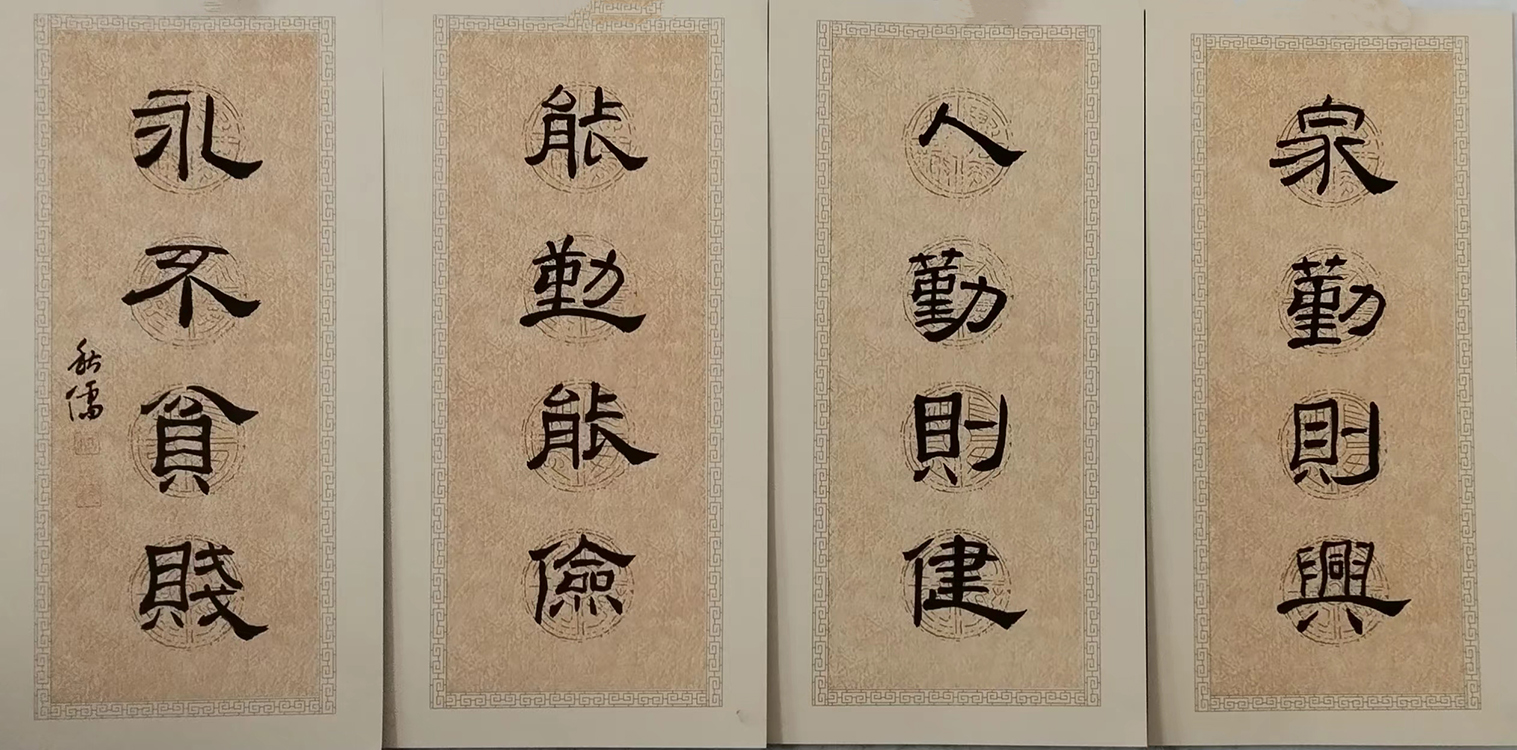 家勤則興
人勤則健
能勤能儉
永不貧賤
秋儒